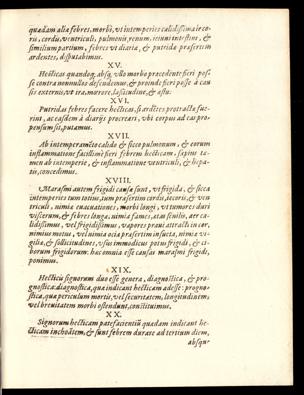 quædam aliæ febres, morbi, vt intemperies calidissima ir co-
rii, cordis, ventriculi, pulmonis, renum, ieiuni intestini, &
similium partium, febres vt diaria, & putridæ præsertim
ardentes, disputabimus.
XV.
Hecticas quandoq; absq; vllo morbo præcedente fieri pos-
se contra nonnullos defendemus, & proinde fieri posse à cau-
sis externis, vt ira, mærore, lassitudine, & æstu.
XVI.
Putridas febres facere hecticas, si ardētes protractæ fue-
rint, ac easdem à diarijs procreari, vbi corpus ad eas pro-
pensum sit, putamus.
XVII.
Ab intemperamēto calido & sicco pulmonum, & eorum
inflammatione facillimè fieri febrem hecticam, sæpius ta-
men ab intemperie, & inflammatione ventriculi, & hepa-
tis, concedimus.
XVIII.
Marasmi autem frigidi causæ sunt, vt frigida, & sicca
intemperies tum totius, tum præsertim cordis, iecoris, & ven-
triculi, nimiæ euacuationes, morbi longi, vt tumores duri
viscerum, & febres longæ, nimia fames, ætas senilis, aer ca-
lidissimus, vel frigidissimus, vapores praui attracti in cor,
nimius motus, vel nimia ocia præsertim in iuuēta, nimiæ vi-
giliæ, & sollicitudines, vsus immodicus potus frigidi, & ci-
borum frigidorum: hæc omnia esse causas marasmi frigidi,
ponimus.
XIX.
Hecticæ signorum duo esse genera, diagnostica, & pro-
gnostica: diagnostica, quæ indicant hecticam adesse: progno-
stica, quæ periculum mortis, vel securitatem, longitudinem,
vel breuitatem morbi ostendunt, constituimus.
XX.
Signorum hecticam patefacientiū quædam indicant he-
cticam inchoātem, & sunt febrem durare ad tertium diem,
absqu-